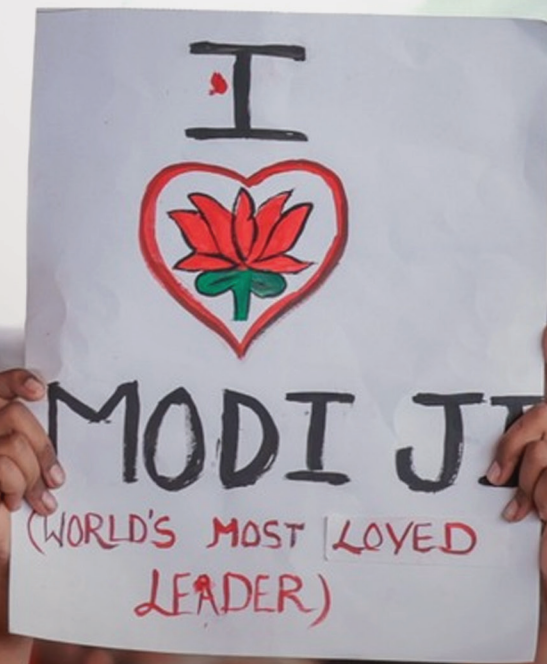 I
MODI JI
(WORLD'S MOST LOVED
LEADER)